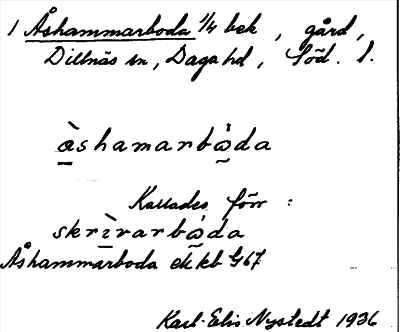 1 Åshammarboda 1/4 bek, gård,
Dillnäs sn, Daga hd, Söd. l.
àshamarbòda
Kallades förr:
skrìvarbòda
Åshammarboda ekkb G67
Karl-Elis Nystedt 1936